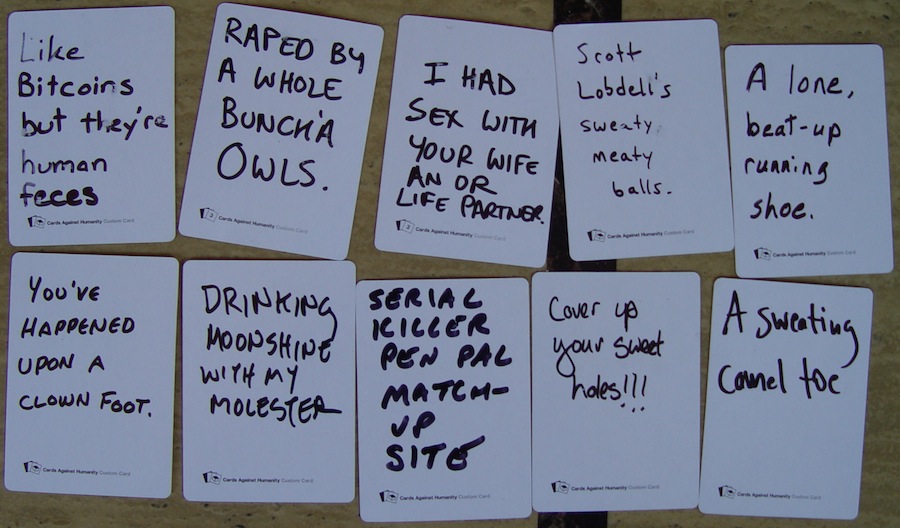 Like
Bitcoins
but they're
human
feces
Cards Against Humanity Custom Card
RAPED BY
A WHOLE
BUNCH'A
OWLS.
Cards Against Humanity Custom Card
I HAD
SEX WITH
YOUR WIFE
AN OR
LIFE PARTNER.
Cards Against Humanity Custom Card
Scott
Lobdell's
sweaty,
meaty
balls.
Cards Against Humanity Custom Card
A lone,
beat-up
running
shoe.
Cards Against Humanity Custom Card
YOU'VE
HAPPENED
UPON A
CLOWN FOOT.
Cards Against Humanity Custom Card
DRINKING
MOONSHINE
WITH MY
MOLESTER
Cards Against Humanity Custom Card
SERIAL
KILLER
PEN PAL
MATCH-
UP
SITE
Cards Against Humanity Custom Card
Cover up
your sweet
holes!!!
Cards Against Humanity Custom Card
A sweating
Camel toe
Cards Against Humanity Custom Card